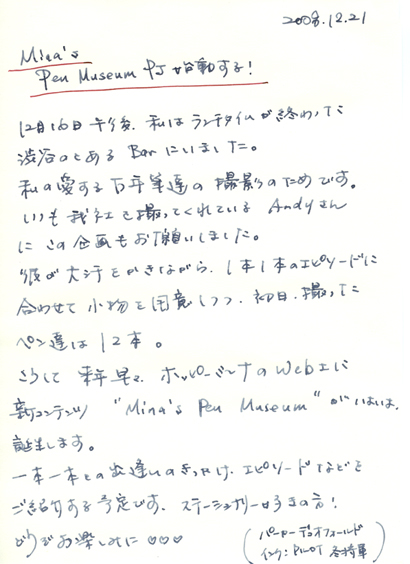 2008.12.21
Mina's
Pen Museum PJ 始動する!
12月16日 午後、私はランチタイムが終わった
渋谷のとある Barにいました。
私の愛する万年筆達の撮影のためです。
いつも我社を撮ってくれている Andyさん
にこの企画もお願いしました。
彼が大汗をかきながら、1本1本のエピソードに
合わせて小物を用意しつつ、初日、撮った
ペン達は12本。
こうして 来年早々、ホッピーミーナのWeb上に
新コンテンツ "Mina's Pen Museum" がいよいよ
誕生します。
一本一本との出逢いのきっかけ、エピソードなどを
ご紹介する予定です。ステーショナリー好きの方!
どうぞお楽しみに♡♡♡
(パーカーデュオフォールド
インク:PILOT